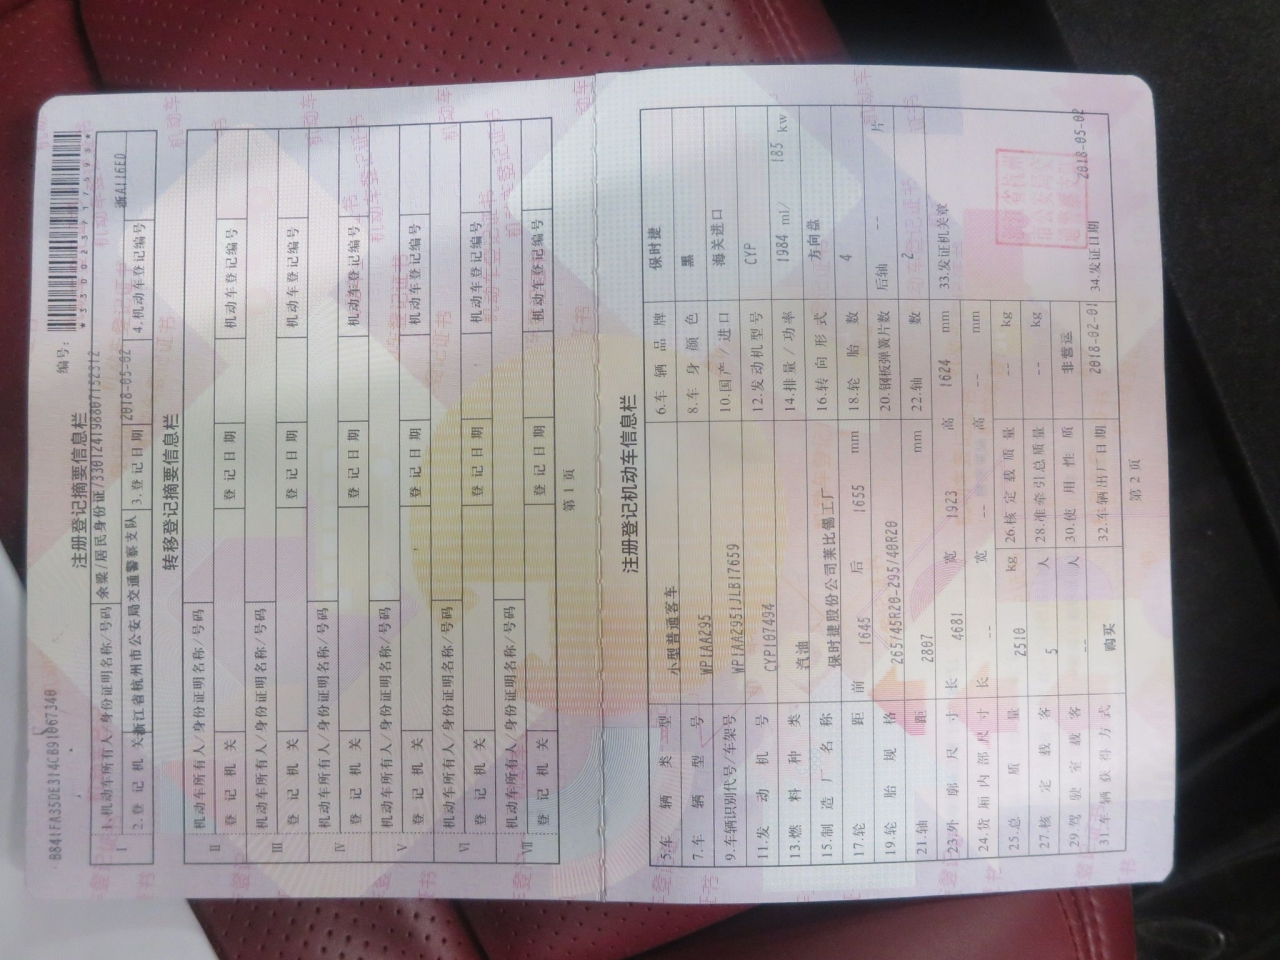 8841FA35DE314CB91067340
编号:
注册登记摘要信息栏
Ⅰ 1.机动车所有人/身份证明名称/号码 余梁/居民身份证/330124198807152312
2.登记机关 浙江省杭州市公安局交通警察支队 3.登记日期 2018-05-02 4.机动车登记编号 浙A116ED
转移登记摘要信息栏
Ⅱ 机动车所有人/身份证明名称/号码
登记机关 登记日期 机动车登记编号
Ⅲ 机动车所有人/身份证明名称/号码
登记机关 登记日期 机动车登记编号
Ⅳ 机动车所有人/身份证明名称/号码
登记机关 登记日期 机动车登记编号
Ⅴ 机动车所有人/身份证明名称/号码
登记机关 登记日期 机动车登记编号
Ⅵ 机动车所有人/身份证明名称/号码
登记机关 登记日期 机动车登记编号
Ⅶ 机动车所有人/身份证明名称/号码
登记机关 登记日期 机动车登记编号
第1页
注册登记机动车信息栏
5.车辆类型 小型普通客车 6.车辆品牌 保时捷
7.车辆型号 WP1AA295 8.车身颜色 黑
9.车辆识别代号/车架号 WP1AA2951JLB17659 10.国产/进口 海关进口
11.发动机号 CYP107494 12.发动机型号 CYP
13.燃料种类 汽油 14.排量/功率 1984 ml/ 185 kw
15.制造厂名称 保时捷股份公司莱比锡工厂 16.转向形式 方向盘
17.轮距 前 1645 后 1655 mm 18.轮胎数 4
19.轮胎规格 265/45R20-295/40R20 20.钢板弹簧片数 后轴 -- 片
21.轴距 2807 mm 22.轴数 2
23.外廓尺寸 长 4681 宽 1923 高 1624 mm 33.发证机关章
24.货厢内部尺寸 长 -- 宽 -- 高 -- mm
25.总质量 2510 kg 26.核定载质量 -- kg
27.核定载客 5 人 28.准牵引总质量 -- kg
29.驾驶室载客 -- 人 30.使用性质 非营运
31.车辆获得方式 购买 32.车辆出厂日期 2018-02-01 34.发证日期 2018-05-02
第2页